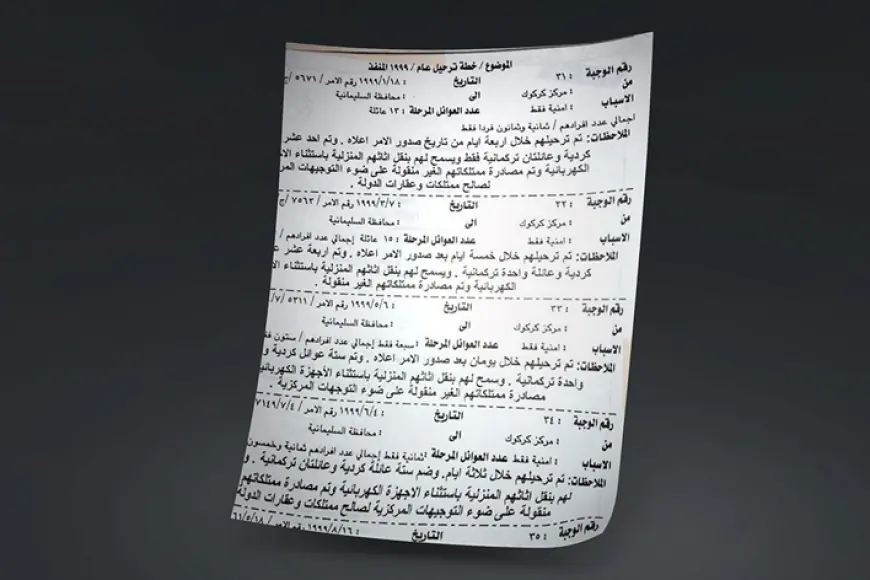 الموضوع / خطة ترحيل عام / ١٩٩٩ المنفذ
رقم الوجبة : ٣١ التاريخ : ١٩٩٩/١/١٨ رقم الامر / ٥٦٧١ /ج
من : مركز كركوك الى : محافظة السليمانية
الاسباب : امنية فقط عدد العوائل المرحلة : ١٣ عائلة
اجمالي عدد افرادهم / ثمانية وثمانون فردا فقط
الملاحظات: تم ترحيلهم خلال اربعة ايام من تاريخ صدور الامر اعلاه . وتم احد عشر
كردية وعائلتان تركمانية فقط ويسمح لهم بنقل اثاثهم المنزلية باستثناء
الكهربائية وتم مصادرة ممتلكاتهم الغير منقولة على ضوء التوجيهات
لصالح ممتلكات وعقارات الدولة .
رقم الوجبة : ٣٢ التاريخ : ١٩٩٩/٣/٧ رقم الامر / ٧٥٦٣ /ج
من : مركز كركوك الى : محافظة السليمانية
الاسباب : امنية فقط عدد العوائل المرحلة : ١٥ عائلة إجمالي عدد افرادهم /
الملاحظات: تم ترحيلهم خلال خمسة ايام بعد صدور الامر اعلاه . وتم اربعة عشر
كردية وعائلة واحدة تركمانية . ويسمح لهم بنقل اثاثهم المنزلية باستثناء
الكهربائية وتم مصادرة ممتلكاتهم الغير منقولة .
رقم الوجبة : ٣٣ التاريخ : ١٩٩٩/٥/٦ رقم الامر / ٥٣١١ /٧/
من : مركز كركوك الى : محافظة السليمانية
الاسباب : امنية فقط عدد العوائل المرحلة : سبعة فقط إجمالي عدد افرادهم / ستون
الملاحظات: تم ترحيلهم خلال يومان بعد صدور الامر اعلاه . وتم ستة عوائل كردية و
واحدة تركمانية . وسمح لهم بنقل اثاثهم المنزلية باستثناء الأجهزة الكهربائي
مصادرة ممتلكاتهم الغير منقولة على ضوء التوجهات المركزية .
رقم الوجبة : ٣٤ التاريخ : ١٩٩٩/٦/٤ رقم الامر / ٧١٤٩/٧/٤
من : مركز كركوك الى : محافظة السليمانية
الاسباب : امنية فقط عدد العوائل المرحلة : ثمانية فقط إجمالي عدد افرادهم ثمانية وخمسون
الملاحظات: تم ترحيلهم خلال ثلاثة ايام. وضم ستة عائلة كردية وعائلتان تركمانية . و
لهم بنقل اثاثهم المنزلية باستثناء الاجهزة الكهربائية وتم مصادرة ممتلكاتهم
منقولة على ضوء التوجيهات المركزية لصالح ممتلكات وعقارات الدولة
رقم الوجبة : ٣٥ التاريخ : ١٩٩٩/٨/١٦ رقم الامر / ٦١/٥/١٨